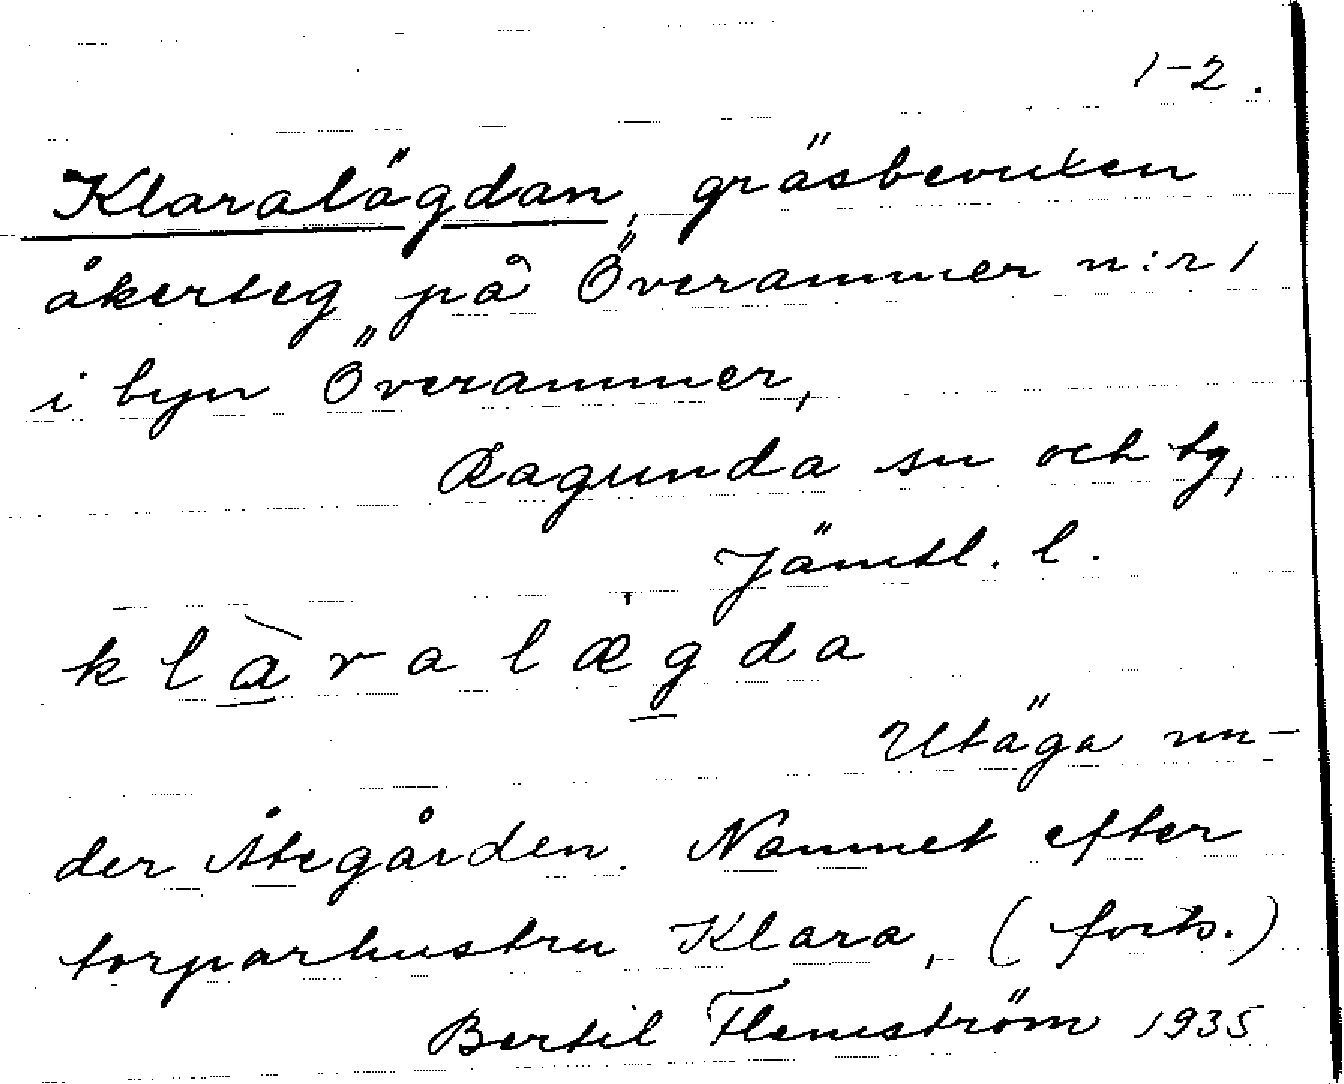 1-2.
Klaralägdan, gräsbevuxen
åkerteg på Överammer n:r 1
i byn Överammer,
Ragunda sn och tg,
Jämtl. l.
klàralægda
Utäga un-
der Åtegården. Namnet efter
torparhustru Klara, (forts.)
Bertil Flemström 1935